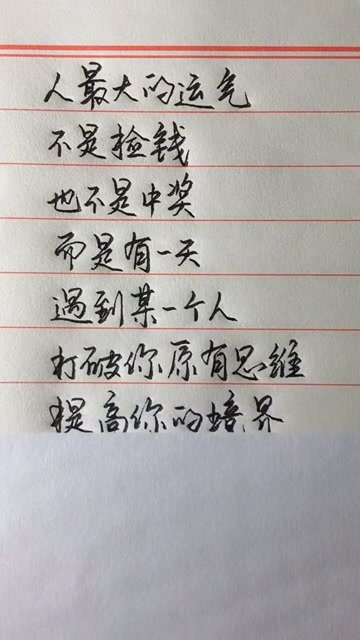 人最大的运气
不是捡钱
也不是中奖
而是有一天
遇到某一个人
打破你原有思维
提高你的境界